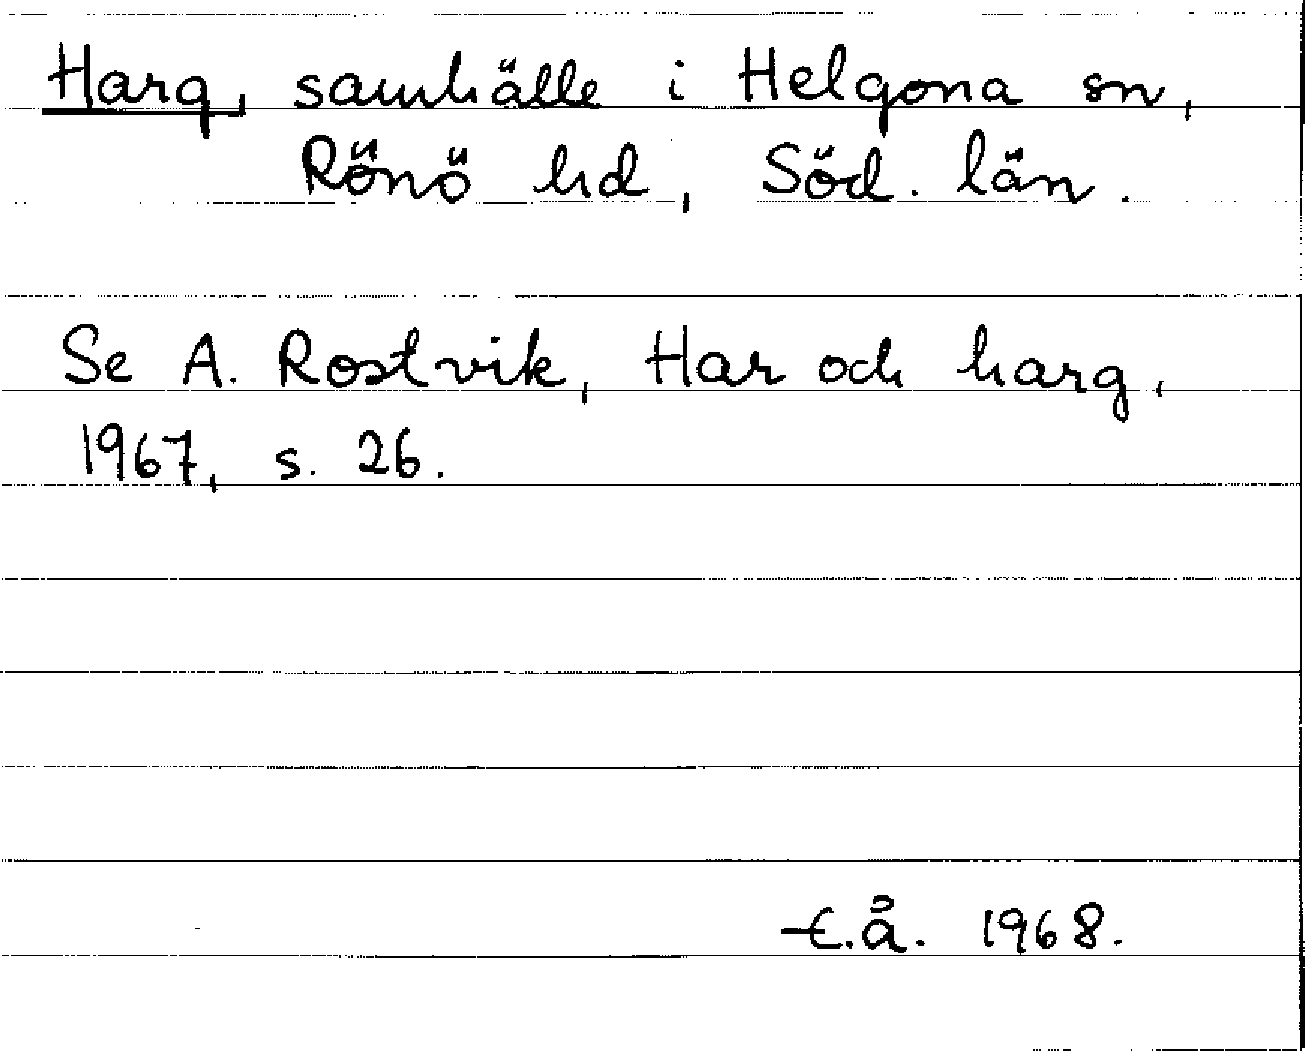 Harg, samhälle i Helgona sn,
Rönö hd, Söd. län.
Se A. Rostvik, Har och harg,
1967, s. 26.
E.å. 1968.